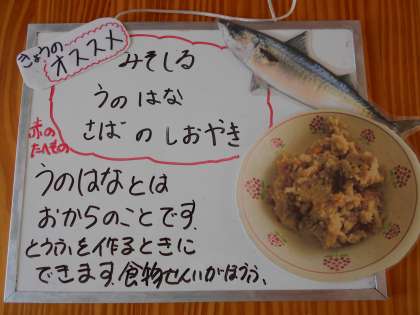 きょうの
オススメ
みそしる
うのはな
さばのしおやき
赤の
たべもの
うのはなとは
おからのことです.
とうふを作るときに
できます.食物せんいがほうふ、